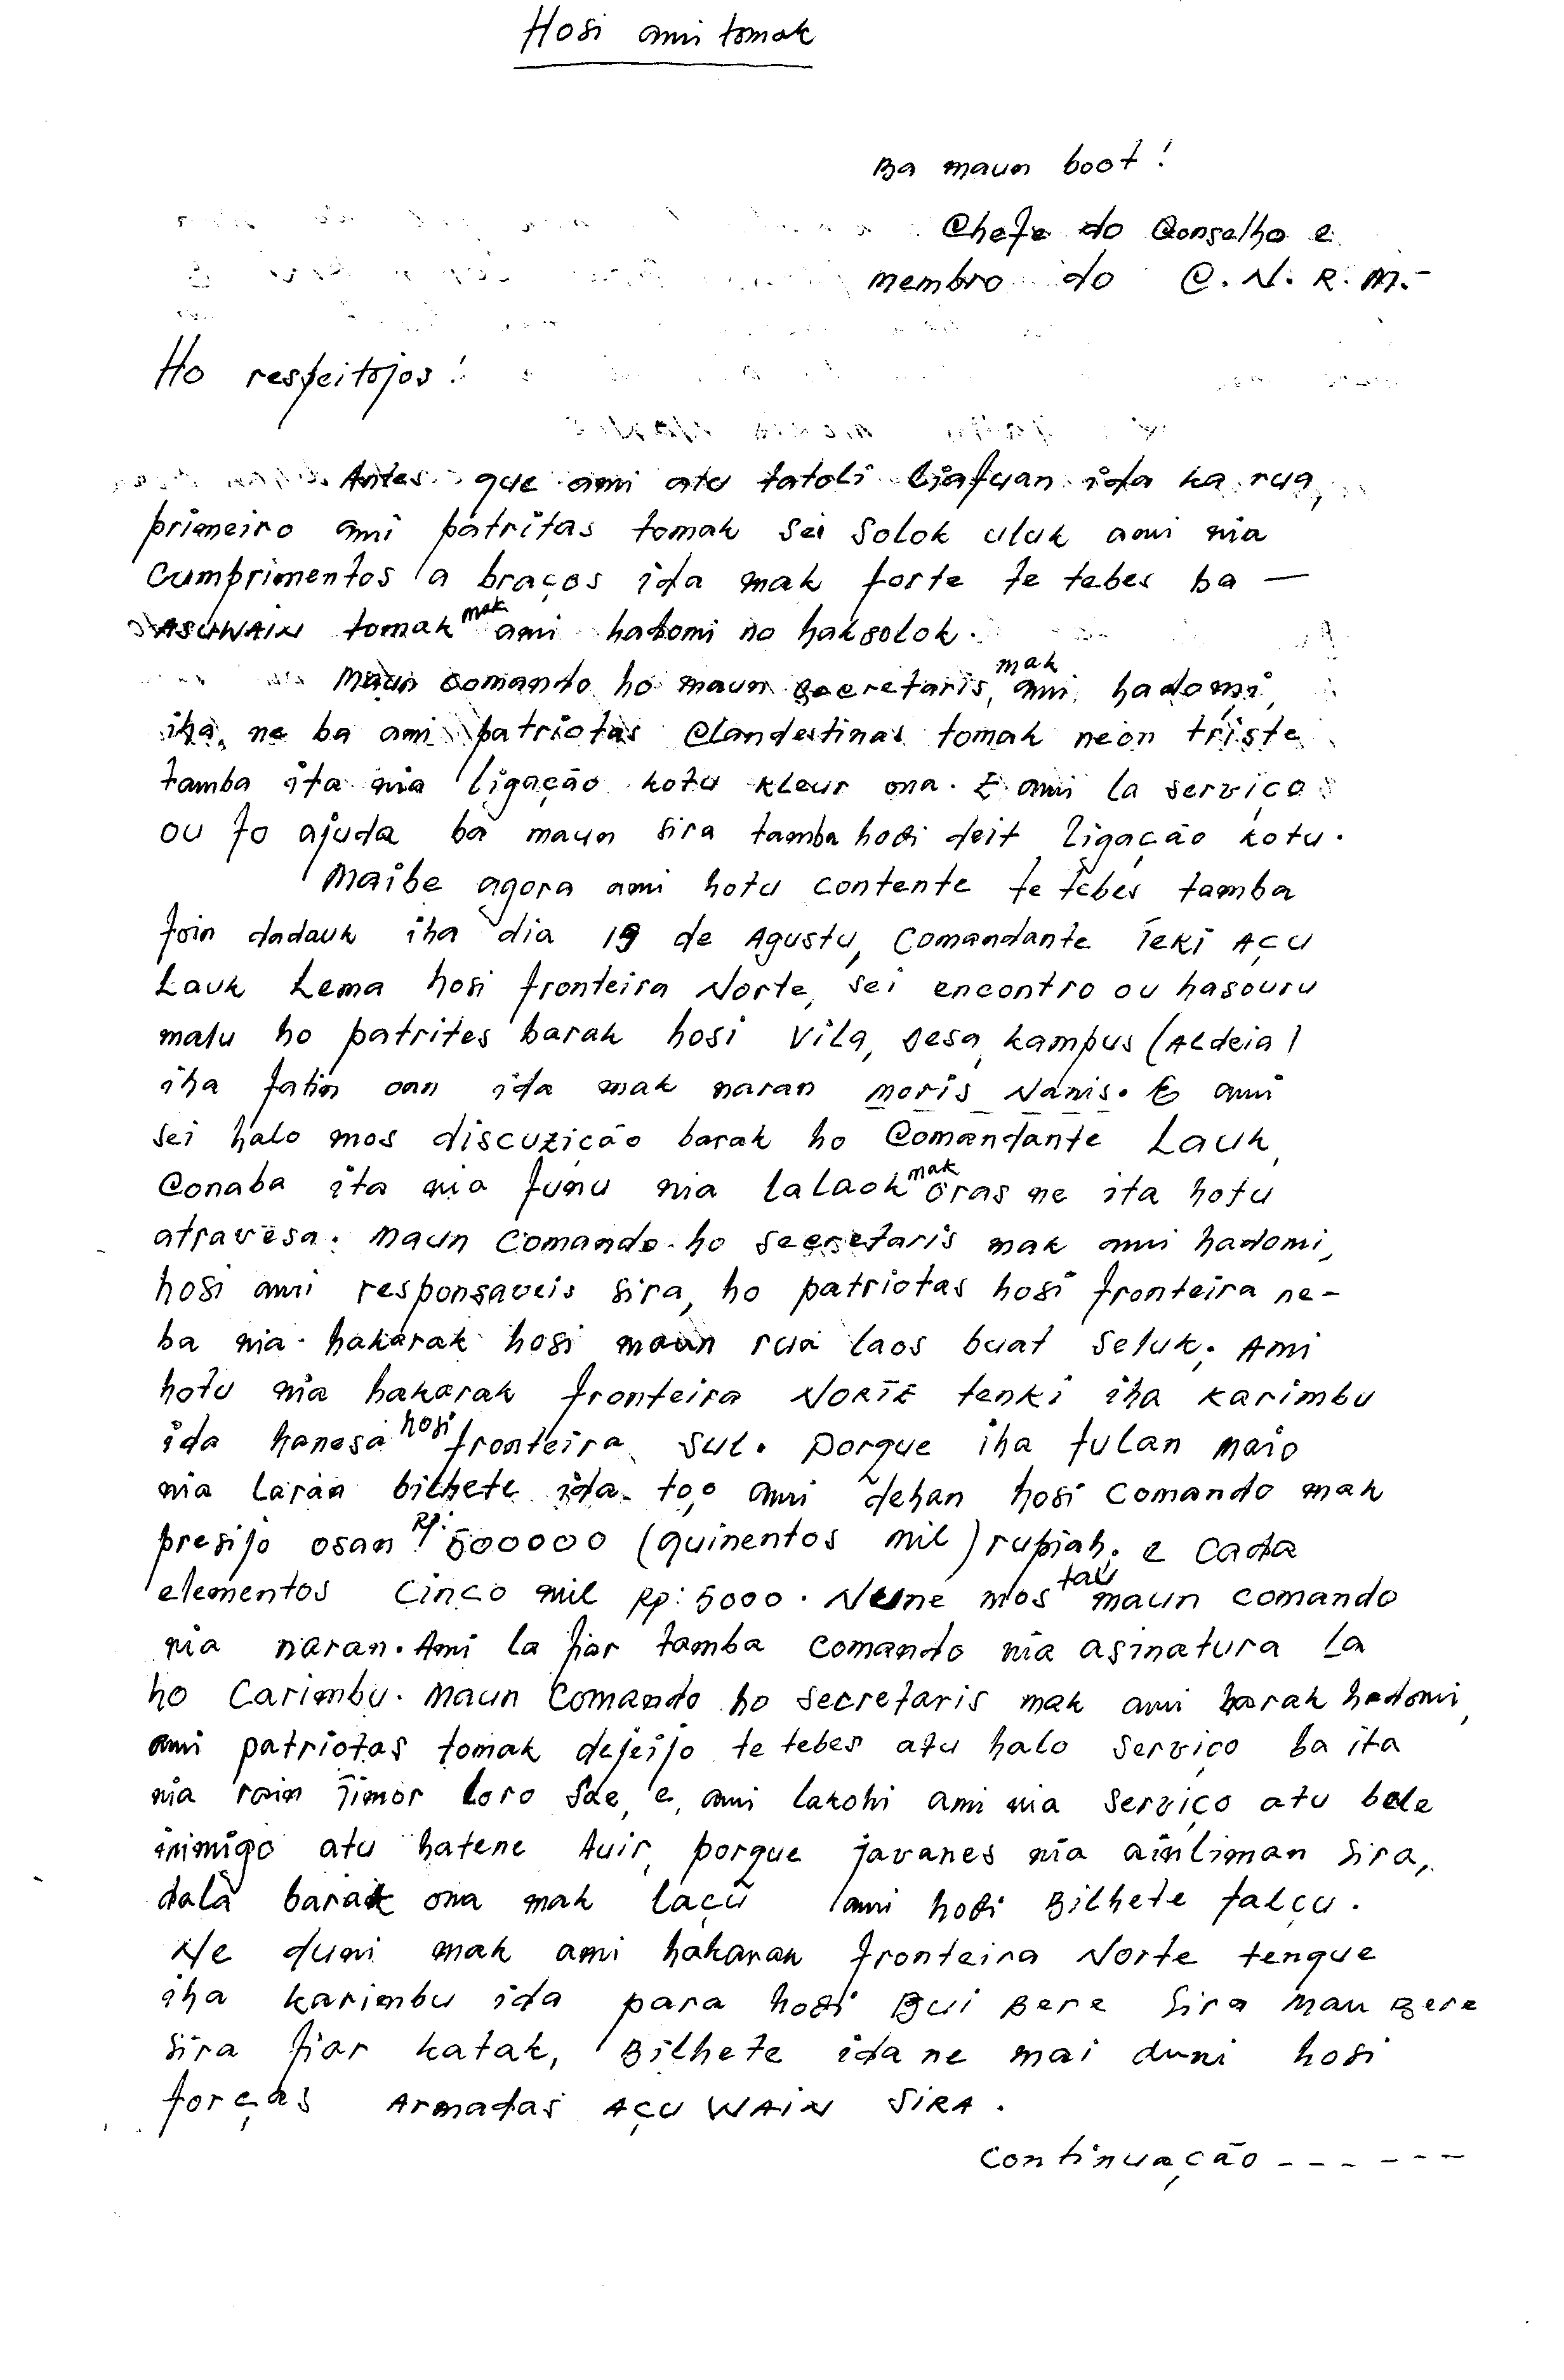 Hosi ami tomak
Ba maun boot!
Chefe do Conselho e
membro do C.N.R.M.-
Ho respeitojos!
Antes que ami atu tatoli liafuan ida ka rua,
primeiro ami patritas tomak sei solok uluk ami nia
cumprimentos a braços ida mak forte te tebes ba —
ASUWAIN tomak mak ami hadomi no haksolok.
Maun comando ho maun secretaris, mak ami hadomi,
iha ne ba ami patriotas Clandestinas tomak neon triste
tamba ita nia ligação kotu kleur ona. E ami la serviços
ou fo ajuda ba maun sira tamba hosi deit ligação kotu.
Maibe agora ami hotu contente te tebes tamba
foin dadauk iha dia 19 de Agustu, Comandante Teki Açu
Lauk Lema hosi fronteira Norte, sei encontro ou hasouru
malu ho patrites barak hosi Vila, Desa, kampus (Aldeia)
iha fatin oan ida mak naran moris Nanis. E ami
sei halo mos discuzição barak ho Comandante Lauk,
Conaba ita nia funu nia lalaok mak oras ne ita hotu
atravesa. Maun Comando ho secretaris mak ami hadomi,
hosi ami responsaveis sira, ho patriotas hosi fronteira ne-
ba nia hakarak hosi maun rua laos buat seluk. Ami
hotu nia hakarak fronteira NORTE tenki iha karimbu
ida hanesa hosi fronteira Sul. Porque iha fulan Maio
nia laran bilhete ida to,o ami dehan hosi Comando mak
presijo osan Rp: 500000 (quinentos mil) rupiah. e cada
elementos cinco mil Rp: 5000. Nune mos tau maun comando
nia naran. Ami la fiar tamba comando nia asinatura la
ho Carimbu. Maun Comando ho secretaris mak ami barak hadomi,
ami patriotas tomak dejeijo te tebes atu halo serviço ba ita
nia rain Timor Loro Sae, e, ami lakohi ami nia serviço atu bele
inimigo atu hatene tuir, porque javanes nia ainliman sira,
dala barak ona mak laçu ami hosi Bilhete falçu.
Ne duni mak ami hakarak fronteira Norte tenque
iha karimbu ida para hosi Bui Bere sira Mau Bere
sira fiar katak, Bilhete ida ne mai duni hosi
forças Armadas Açu WAIN SIRA.
Continuação ------